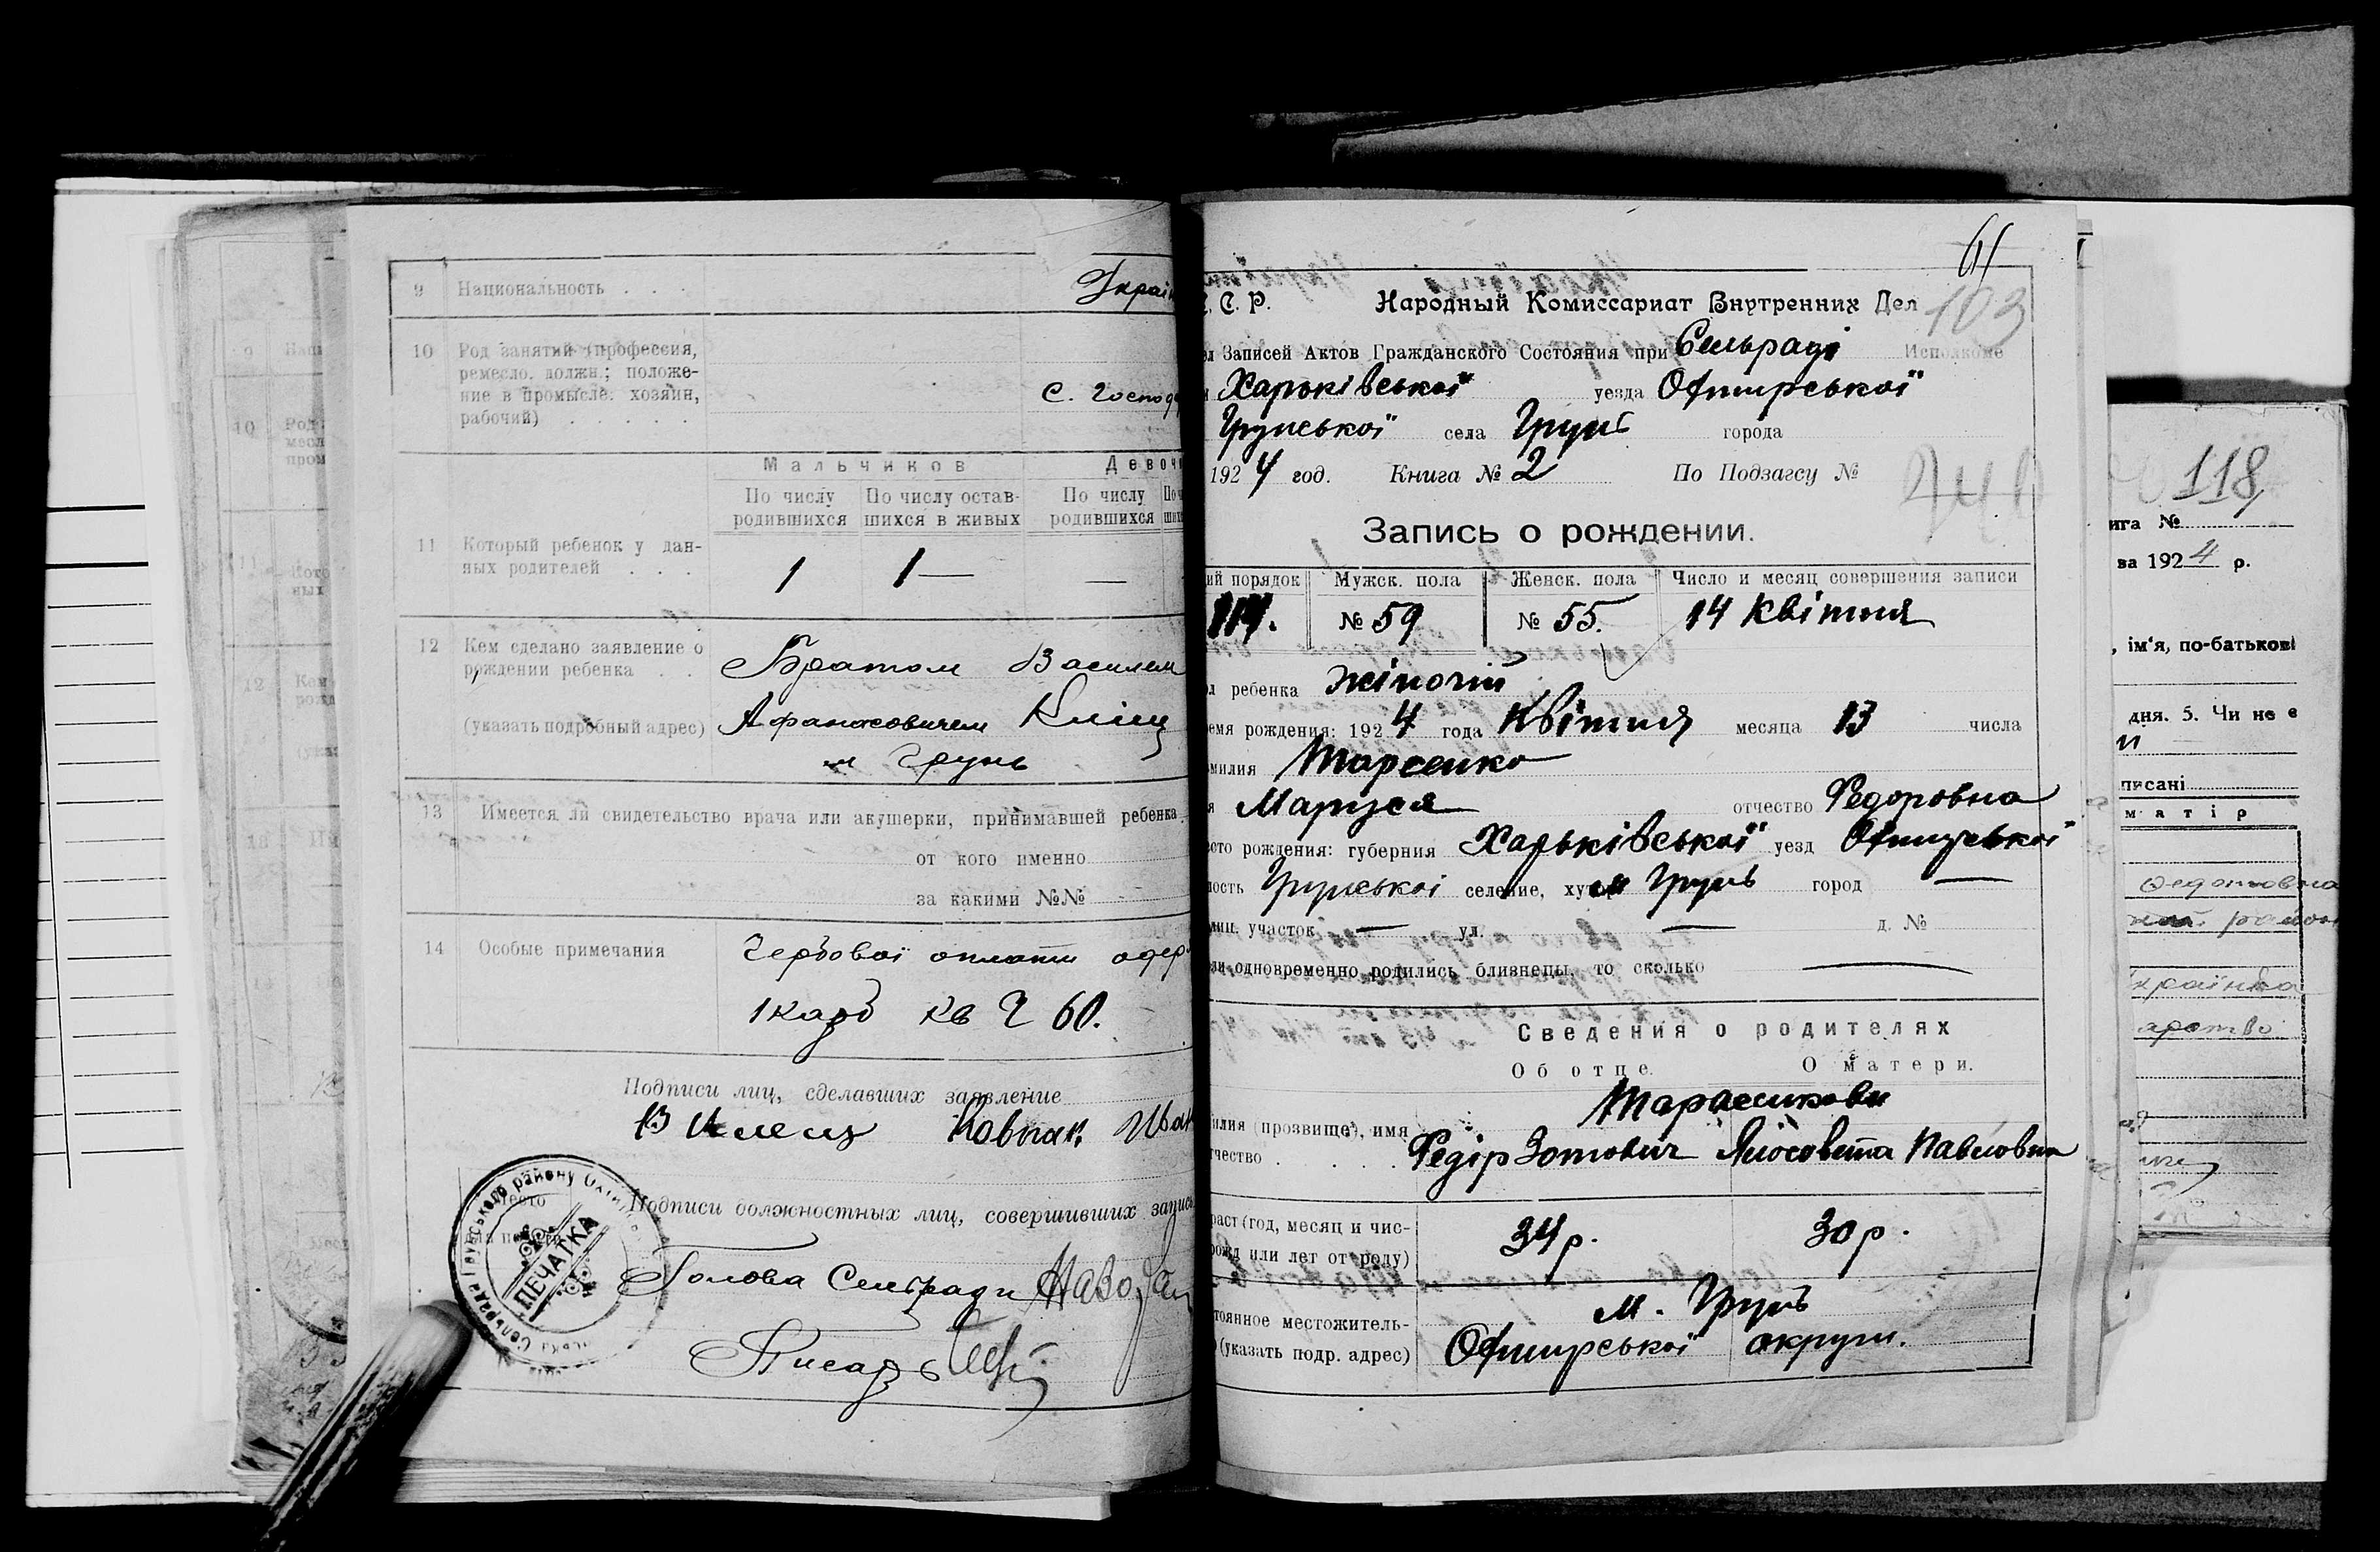 9 Национальность . . .
10 Род занятий (профессия,
ремесло, должн.; положе-
ние в промысле: хозяин,
рабочий) . . . . .
С. Господ
Мальчиков Девоч
По числу родившихся По числу остав-шихся в живых По числу родившихся
11 Который ребенок у дан-
ных родителей . . .
1 1— —
12 Кем сделано заявление о
рождении ребенка . .
(указать подробный адрес)
Братом Василем
Афанасовичем
м Грунь
13 Имеется ли свидетельство врача или акушерки, принимавшей ребенка
от кого именно
за какими №№
14 Особые примечания
Гербової оплати одер
1 карб кв Ч 60.
Подписи лиц, сделавших заявление
Ковпак Иван
Место
Подписи должностных лиц, совершивших запись
ПЕЧАТКА
Голова Сельради
Писарь
61
103
С. Р. Народный Комиссариат Внутренних Дел
Записей Актов Гражданского Состояния при Сельраді Исполкоме
Харьківської уезда Охтирської
Грунської села Грунь города
1924 год. Книга № 2 По Подзагсу №
Запись о рождении.
порядок Мужск. пола Женск. пола Число и месяц совершения записи
114. № 59 № 55. 14 Квітня
ребенка жіночій
рождения: 1924 года Квітня месяца 13 числа
Маруся отчество Федоровна
рождения: губерния Харьківської уезд Охтирської
Грунської селение, хут. м Грунь город —
участок — ул. — д. №
одновременно родились близнецы, то сколько —
Сведения о родителях
Об отце. О матери.
(прозвище), имя
Федір Зотович Лизовета Павловна
(год, месяц и чис-
или лет от роду)
34 р. 30 р.
местожитель-
(указать подр. адрес)
м. Грунь
Охтирської округи.
118
№
за 1924 р.
, ім'я, по-батькові
дня. 5. Чи не є
писані
матір